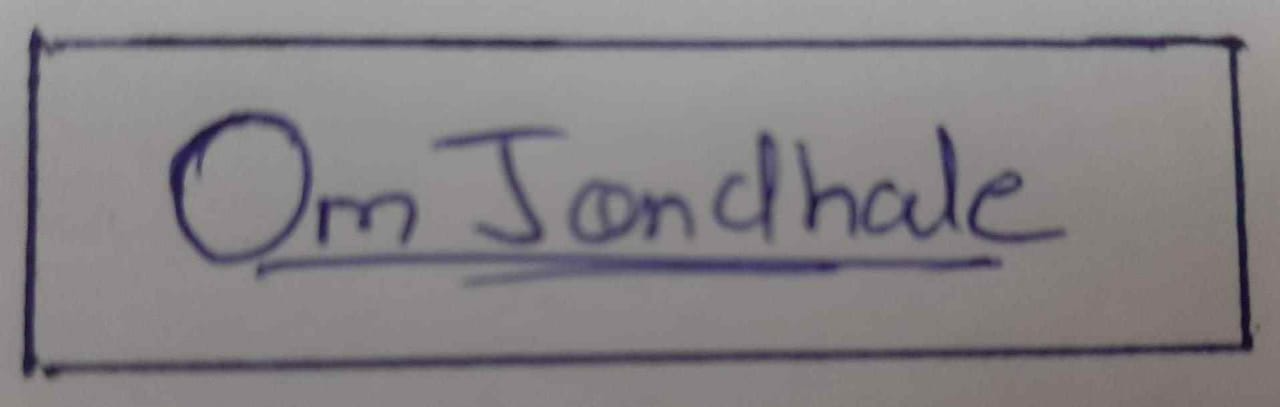 Om Jondhale